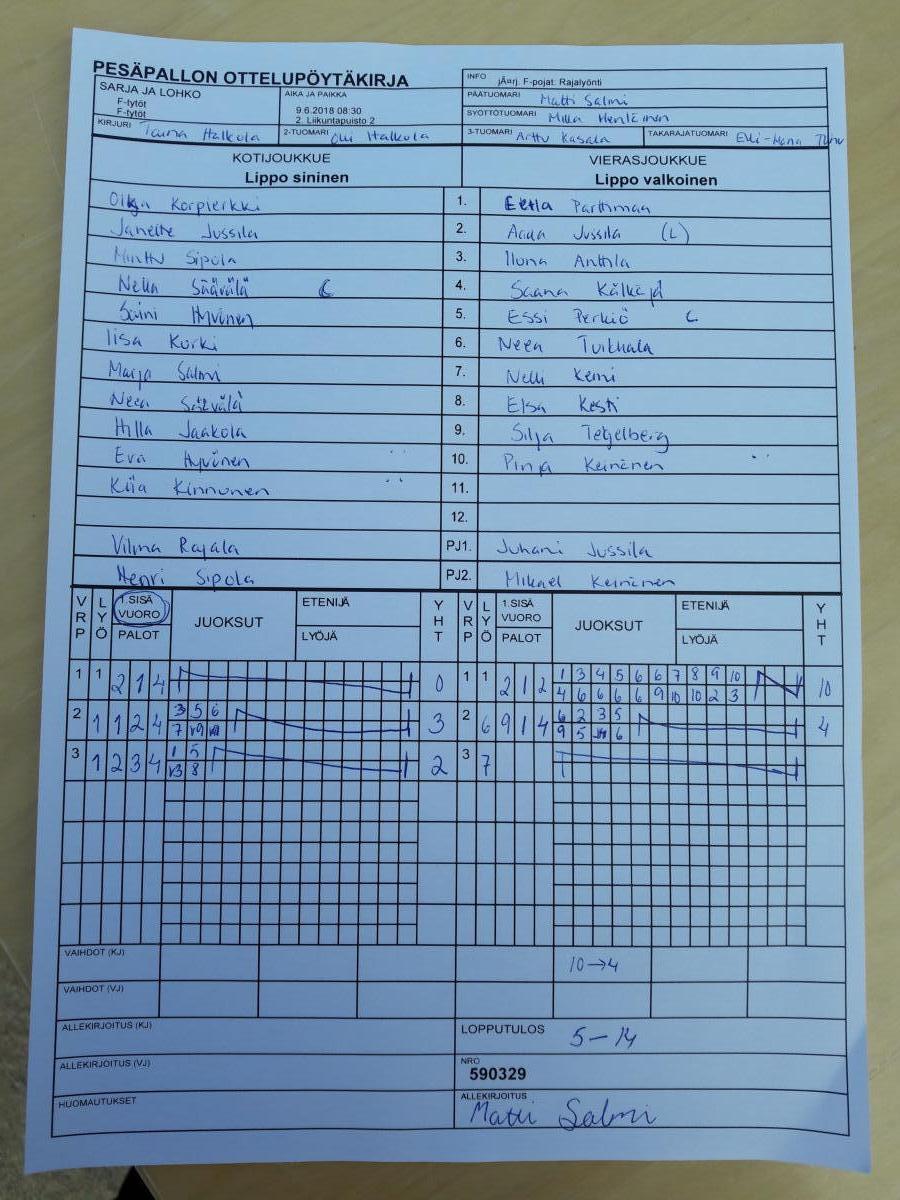 PESÄPALLON OTTELUPÖYTÄKIRJA
INFO jÄ¤rj. F-pojat. Rajalyönti
SARJA JA LOHKO
F-tytöt
F-tytöt
AIKA JA PAIKKA
9.6.2018 08:30
2. Liikuntapuisto 2
PÄÄTUOMARI Matti Salmi
SYÖTTÖTUOMARI Milla
KIRJURI Halkola
2-TUOMARI Olli Halkola
3-TUOMARI Arttu Kasala
TAKARAJATUOMARI
KOTIJOUKKUE
Lippo sininen
VIERASJOUKKUE
Lippo valkoinen
Korpierkki 1. Eetla Parttimaa
Janette Jussila 2. Aada Jussila (L)
Minttu Sipola 3. Iluna Anttila
Nella Säävälä C 4. Saana
Saini Hyvönen 5. Essi Perkiö C
Iisa Kurki 6. Neea Tuikkala
Marja Salmi 7. Nelli Kemi
Neea Säävälä 8. Elsa Kesti
Hilla Jaakola 9. Silja Tegelberg
Eva Hyvönen 10. Pinja Keinänen
Kiia Kinnunen 11.
12.
Vilma Rajala PJ1. Juhani Jussila
Henri Sipola PJ2. Mikael Keinänen
VRP LYÖ 1.SISÄ VUORO PALOT JUOKSUT ETENIJÄ LYÖJÄ YHT VRP LYÖ 1.SISÄ VUORO PALOT JUOKSUT ETENIJÄ LYÖJÄ YHT
1 1 2 1 4 0 1 1 2 1 2 1 3 4 5 6 6 7 8 9 10 10
4 6 6 6 6 9 10 10 2 3
2 1 1 2 4 3 5 6 3 2 6 9 1 4 6 2 3 5 4
7 v9 9 5 6
3 1 2 3 4 1 5 2 3 7
v3 8
VAIHDOT (KJ) 10→4
VAIHDOT (VJ)
ALLEKIRJOITUS (KJ)
LOPPUTULOS 5–14
ALLEKIRJOITUS (VJ)
NRO
590329
HUOMAUTUKSET
ALLEKIRJOITUS
Matti Salmi